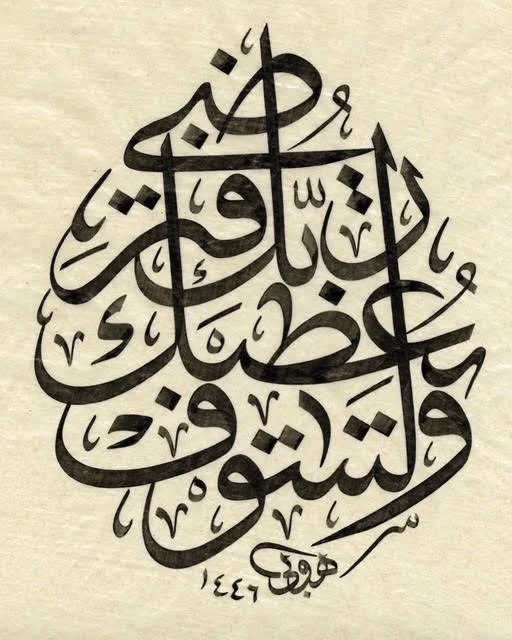 ولسوف يعطيك ربك فترضى
١٤٤٦